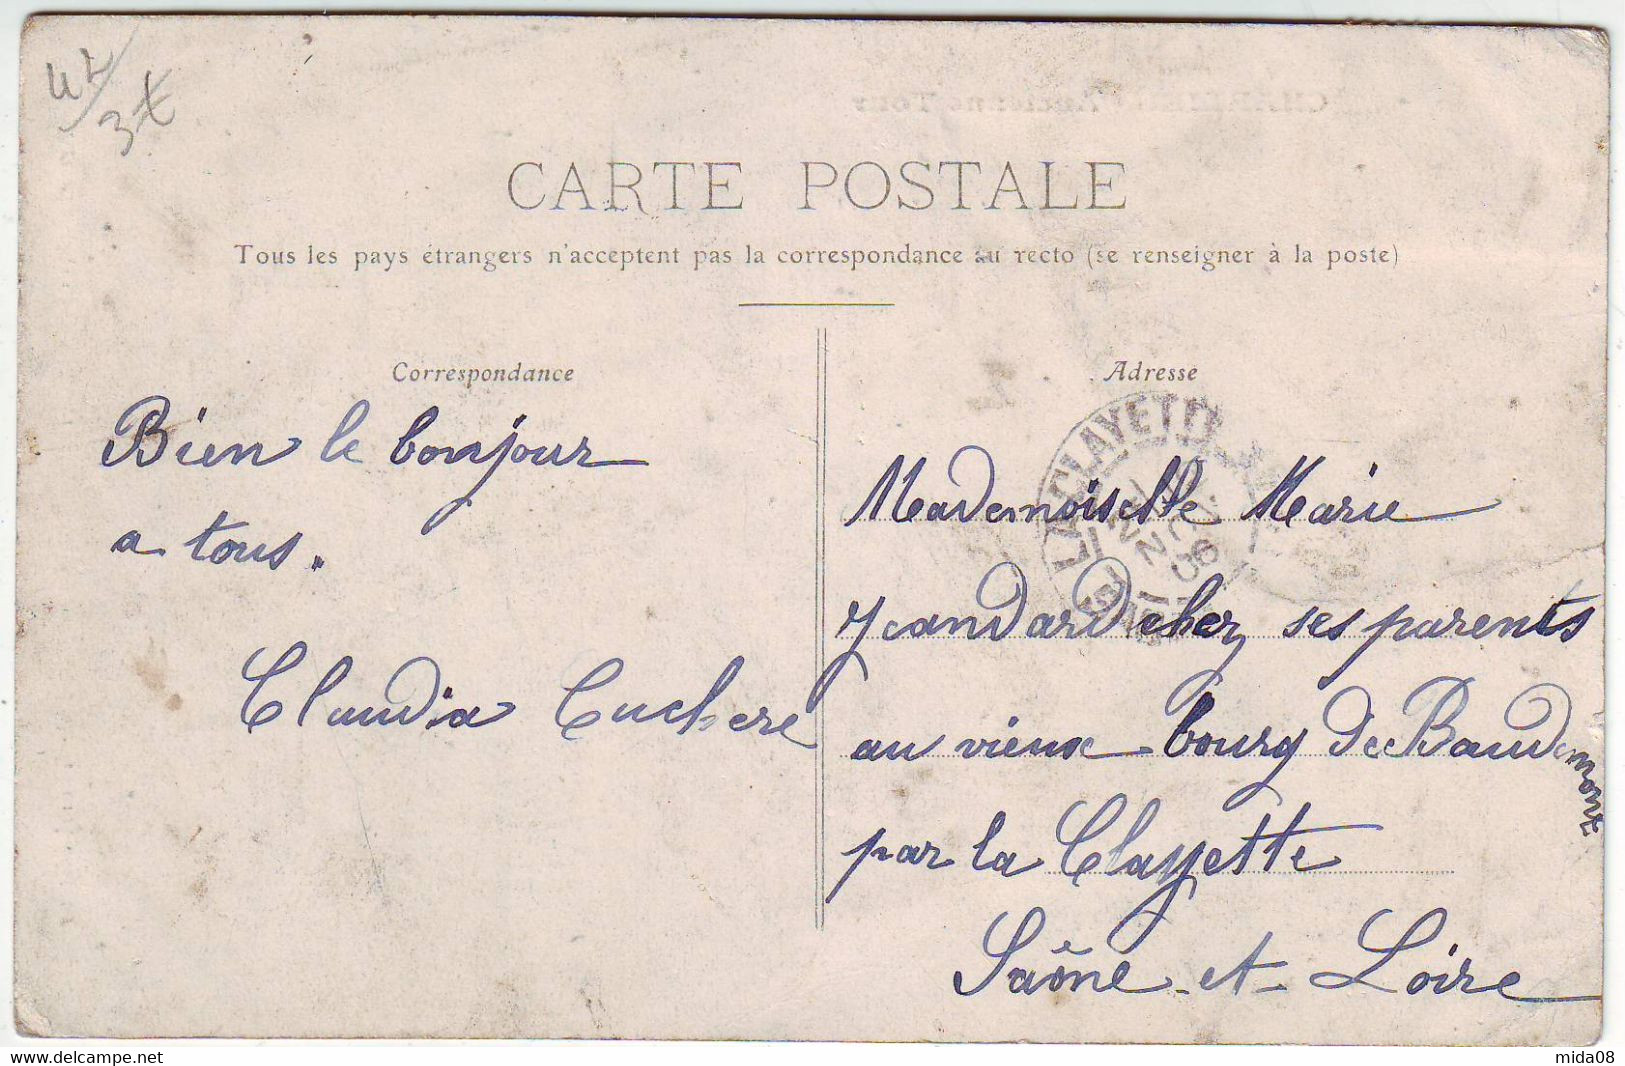 42/
3€
CARTE POSTALE
Tous les pays étrangers n'acceptent pas la correspondance au recto (se renseigner à la poste)
Correspondance
Bien le bonjour
a tous.
Claudia Cuchere
Adresse
LA CLAYETTE
NOV
06
Mademoiselle Marie
chez ses parents
au vieux bourg de Baudemont
par la Clayette
Saône-et-Loire
mida08
www.delcampe.net